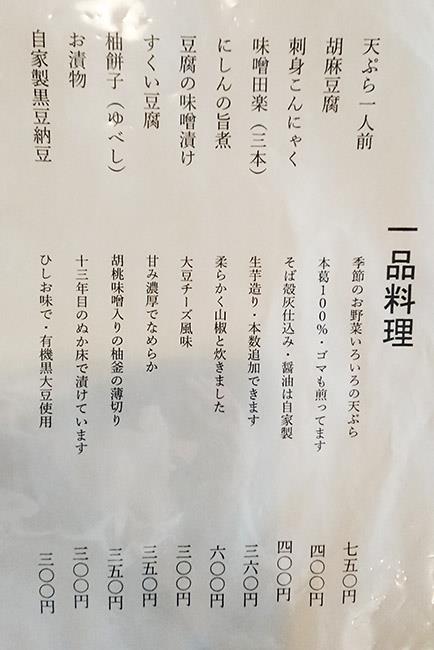 一品料理
天ぷら一人前 季節のお野菜いろいろの天ぷら 七五〇円
胡麻豆腐 本葛100%・ゴマも煎ってます 四〇〇円
刺身こんにゃく そば殻灰仕込み・醤油は自家製 四〇〇円
味噌田楽（三本） 生芋造り・本数追加できます 三六〇円
にしんの旨煮 柔らかく山椒と炊きました 六〇〇円
豆腐の味噌漬け 大豆チーズ風味 三〇〇円
すくい豆腐 甘み濃厚でなめらか 三五〇円
柚餅子（ゆべし） 胡桃味噌入りの柚釜の薄切り 三五〇円
お漬物 十三年目のぬか床で漬けています 三〇〇円
自家製黒豆納豆 ひしお味で・有機黒大豆使用 三〇〇円